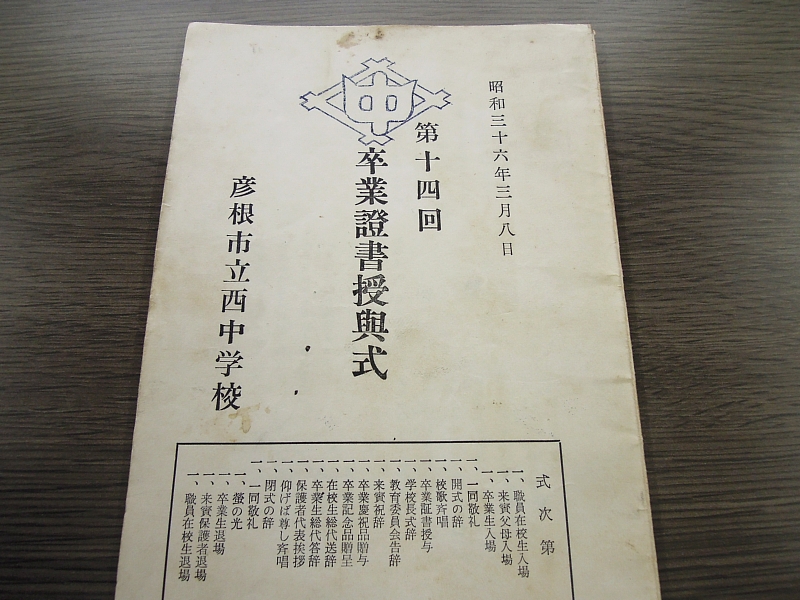 昭和三十六年三月八日
第十四回
卒業證書授與式
彦根市立西中学校
中
式次第
一、職員在校生入場
一、来賓父母入場
一、卒業生入場
一、一同敬礼
一、開式の辞
一、校歌斉唱
一、卒業証書授与
一、学校長式辞
一、教育委員会告辞
一、来賓祝辞
一、卒業慶祝品贈与
一、卒業記念品贈呈
一、在校生総代送辞
一、卒業生総代答辞
一、保護者代表挨拶
一、仰げば尊し斉唱
一、閉式の辞
一、一同敬礼
一、螢の光
一、卒業生退場
一、来賓保護者退場
一、職員在校生退場